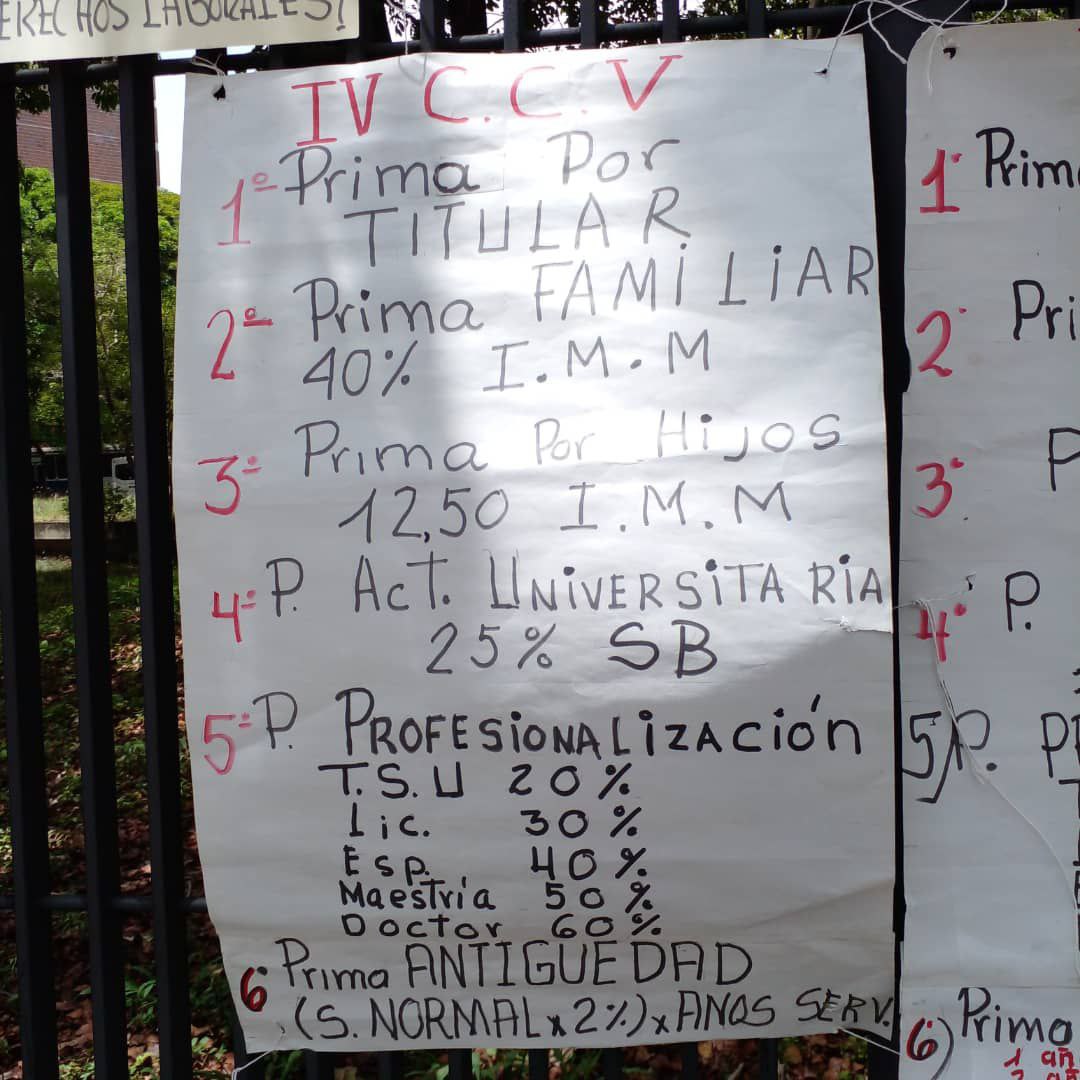 ERECHOS LABORALES!
IV C.C.V
1º- Prima Por
TITULAR
2º- Prima FAMILIAR
40% I.M.M
3º- Prima Por Hijos
12,50 I.M.M
4º- P. ACT. UNIVERSITARIA
25% SB
5º- P. PROFESIONALIZACIÓN
T.S.U 20%
Lic. 30%
Esp. 40%
Maestría 50%
Doctor 60%
6. Prima ANTIGUEDAD
(S. NORMAL x 2%) x ANOS SERV.
1. Prim
2. Pri
3. P
4. P.
5) P. P
6) Prima
1 añ
2 añ